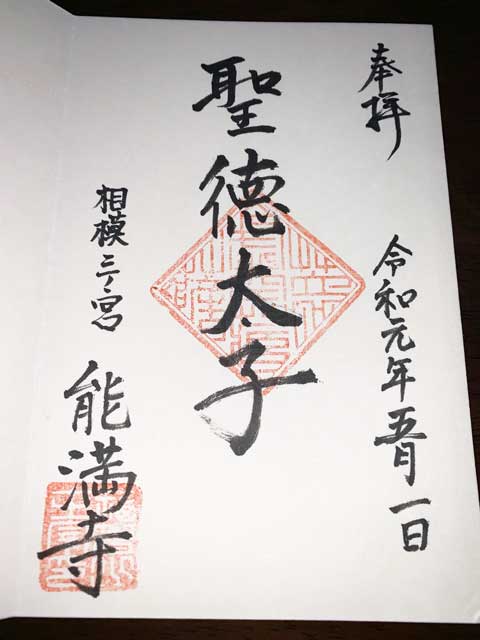 奉拝
令和元年五月一日
聖徳太子
相模三ノ宮
能満寺